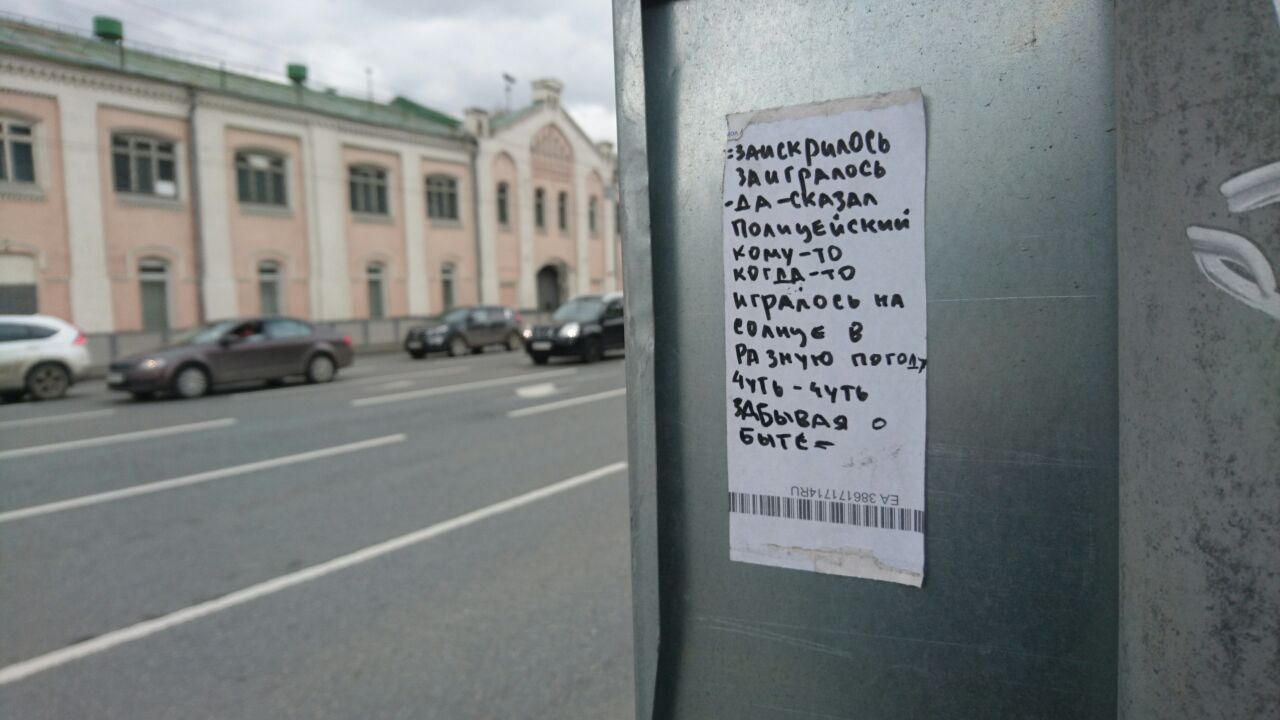 =ЗАИСКРИЛОСЬ
ЗАИГРАЛОСЬ
-ДА-СКАЗАЛ
ПОЛИЦЕЙСКИЙ
КОМУ-ТО
КОГДА-ТО
ИГРАЛОСЬ НА
СОЛНЦЕ В
РАЗНУЮ ПОГОДУ
ЧУТЬ-ЧУТЬ
ЗАБЫВАЯ О
БЫТЕ=
EA 386171714RU